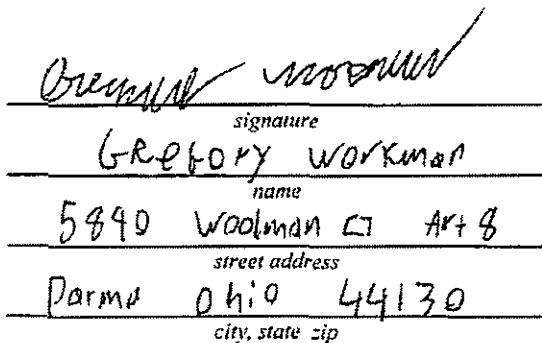 signature
GREGORY Workman
name
5840 Woolman CT Apt 8
street address
Parma Ohio 44130
city, state zip